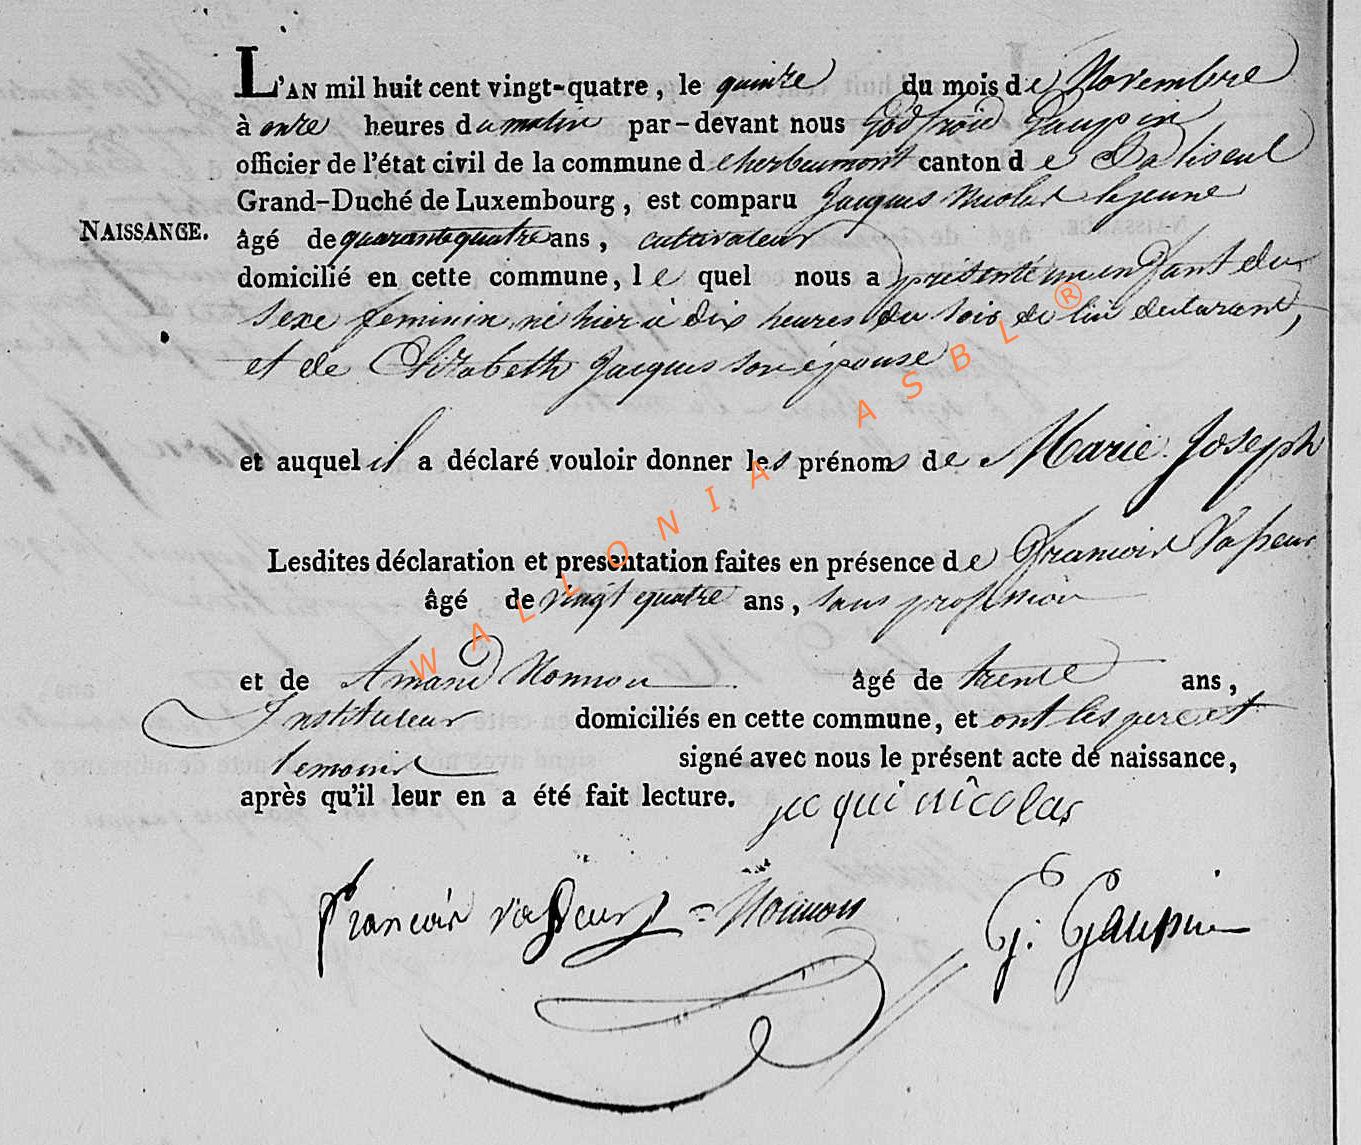 L'AN mil huit cent vingt-quatre, le quinze du mois de Novembre
à onze heures du matin par-devant nous Godfroid Gaupin
officier de l'état civil de la commune d'herbeumont canton de Paliseul
Grand-Duché de Luxembourg, est comparu Jacques Nicolas lejeune
NAISSANGE.
âgé de quarante quatre ans, cultivateur
domicilié en cette commune, lequel nous a présenté un enfant du
sexe feminin, né hier à dix heures du soir de lui declarant,
et de Elizabeth Jacques son épouse
et auquel il a déclaré vouloir donner les prénoms de Marie Joseph
Lesdites déclaration et presentation faites en présence de Francois Vasseur
âgé de vingt quatre ans, sans profession
et de Amand Nonnon âgé de trente ans,
Instituteur domiciliés en cette commune, et ont les pere et
temoins signé avec nous le présent acte de naissance,
après qu'il leur en a été fait lecture. jacqui nicolas
francois vasseur = Nonnon G. Gaupin
WALLONIA ASBL ®